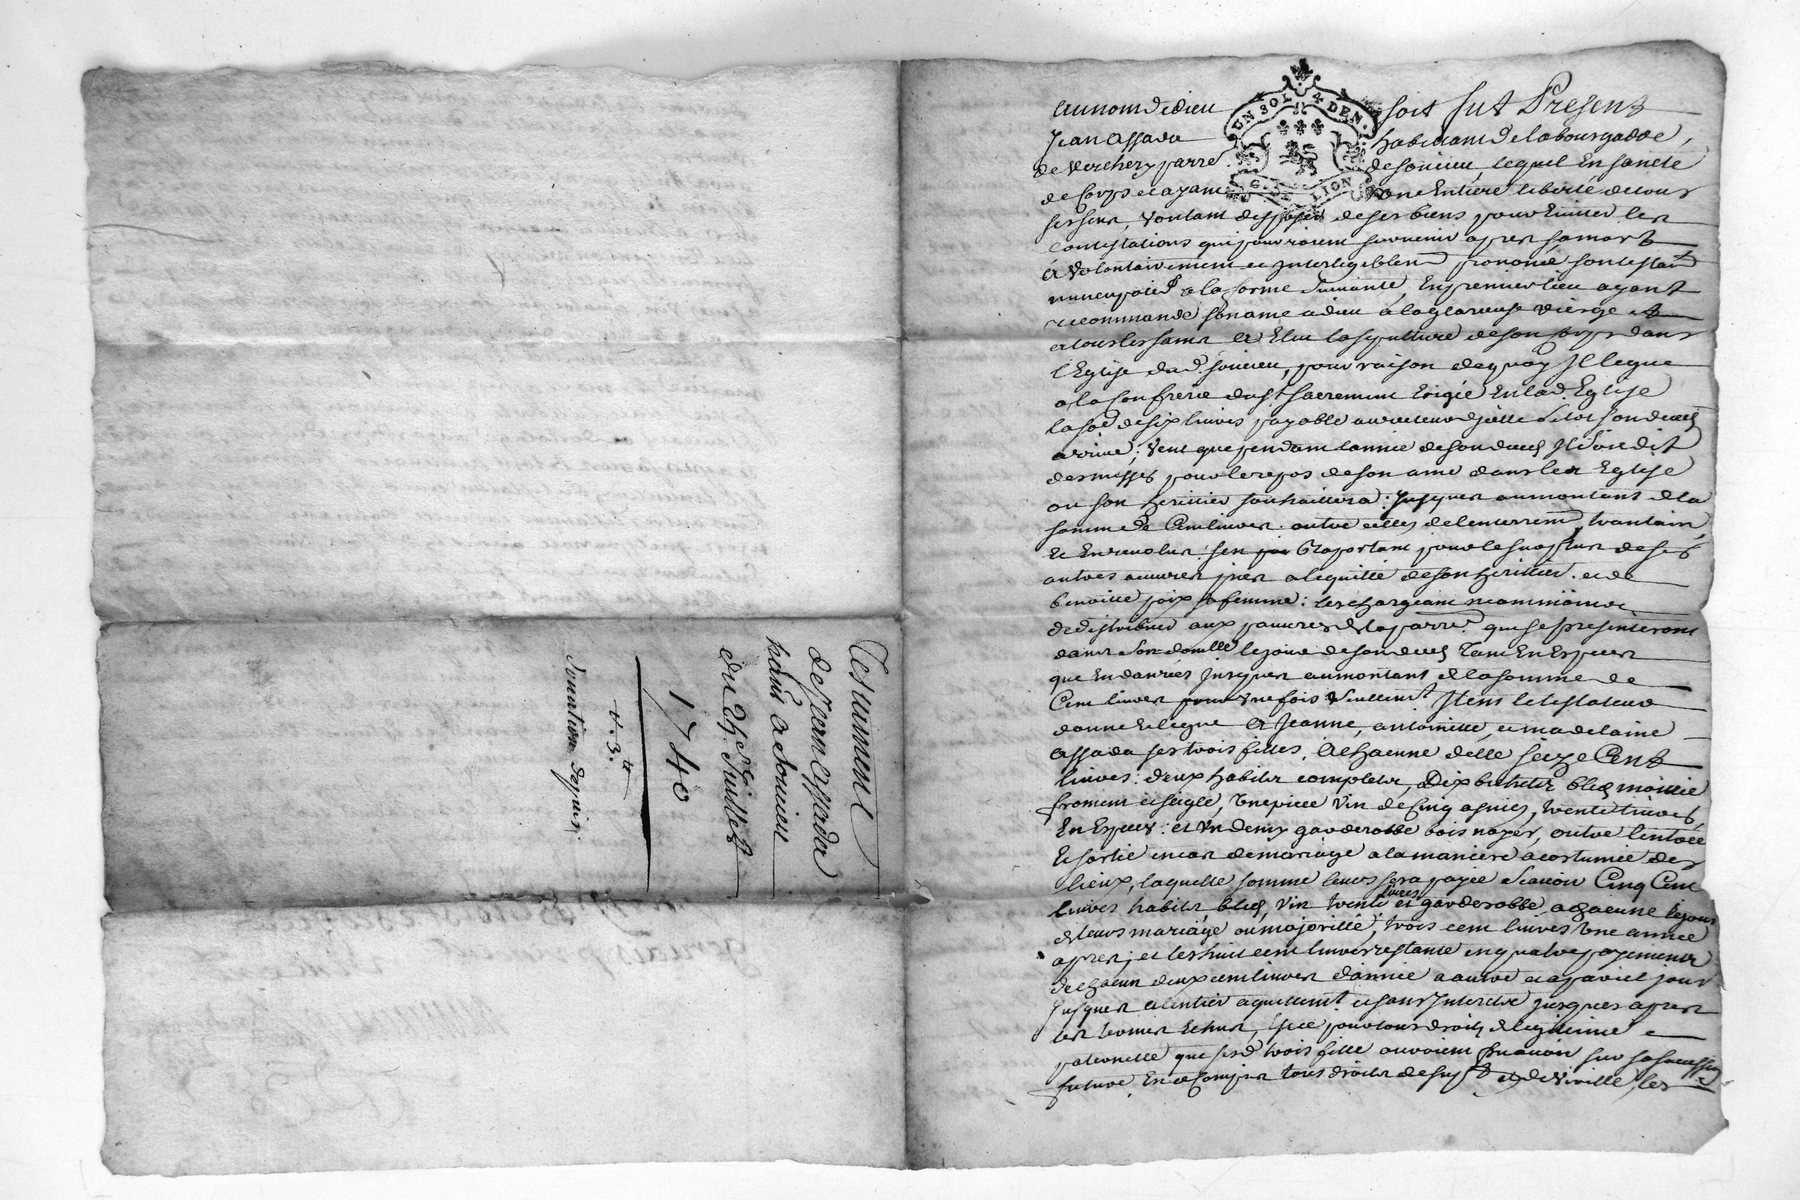 Testament
de Jean Assada
habitt a Soucieu
du 25e Juillet
1740
UN SOL 4 DEN.
G. DE LION
au nom de dieu soit fut Present
Jean Assada habitant de la bourgadde
de Verchery parre de Soucieu, lequel En sancté
de Corps et ayant Une Entiere liberté de tous
ses sens, voulant disposer de ses biens pour Eviter les
contestations qui pourroient survenir apres sa mort
a volontairement et Inteligiblemt prononcé son testamt
nuncupatif a la forme Suivante, En premier lieu ayant
recommandé son ame a dieu a la glorieuse vierge et
a tous les saints a Elu la sepulture de son Corps dans
l'Eglise dud. Soucieu, pour raison de quoy Il legue
a la Confrerie du st Sacrement Erigée En lad. Eglise
la soe de six livres payable au recteur d'jcelle Sitot son deces
arrivé; Veut que pendant l'année de son deces Il soit dit
des messes pour le repos de son ame dans les Eglise
ou son heritier souhaittera: Jusques au montant de la
somme de Cent livres: outre celles de l'enterremt, trantain
et En revolus: sen raportant pour le surplus de ses
autres oeuvres pies a lequitté de son heritier. et de
benoitte joix sa femme: les chargeant neammoins
de distribuer aux pauvres de la parre. qui se presenteront
dans Son domille le jour de son deces Tant En Especes
que En danrées Jusques au montant de la somme de
Cent livres pour Une fois Seullemt Item le testateur
donne et legue a Jeanne, antoinette, et madelaine
Assada ses trois filles, a chacune d'elle seize Cent
livres: deux habits complets, Dix bichets bled moitié
froment et seigle, Une piece Vin de Cinq asnées, trente livres
En Especes: et Un demy garderobbe bois noyer, outre l'entrée
et sortie en cas de mariage a la maniere acoutumée des
lieux, laquelle somme leurs sera payée Scavoir Cinq Cent
livres habits, bled, vin trente livres et garderobbe a chacune le jour
de leurs mariage ou majorité; trois cent livres Une année
apres; et les huit cent livres restante en quatre payements
de chacun deux cent livres d'année a autre et a pareil jour
Jusques a l'entier aquittemt et sans Interetre jusques apres
les termes Echus, Et ce pour tous droits de legitime
paternelle que sesd trois fille auroient pu avoir sur sa succession
future, En ce Compris tous droits de supt et de Virille, les